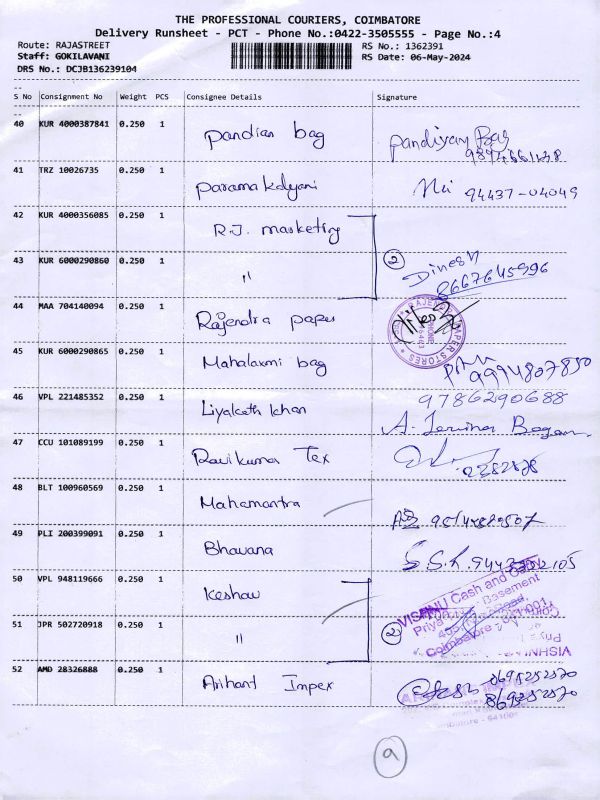 THE PROFESSIONAL COURIERS, COIMBATORE
Delivery Runsheet - PCT - Phone No.:0422-3505555 - Page No.:4
Route: RAJASTREET
Staff: GOKILAVANI
DRS No.: DCJB136239104
RS No.: 1362391
RS Date: 06-May-2024
S No Consignment No Weight PCS Consignee Details Signature
40 KUR 4000387841 0.250 1 Pandian bag Pandiyan Bag
41 TRZ 10026735 0.250 1 Parama kalyani 94437-04049
42 KUR 4000356085 0.250 1 R.J. marketing
43 KUR 6000290860 0.250 1 " 2 Dinesh
8667645996
44 MAA 704140094 0.250 1 Rajendra paper
RAJENDRA PAPER STORES
45 KUR 6000290865 0.250 1 Mahalaxmi bag 9994807850
46 VPL 221485352 0.250 1 Liyakath khan 9786290688
47 CCU 101089199 0.250 1 Ravikumar Tex
48 BLT 100960569 0.250 1 Mahamantra
49 PLI 200399091 0.250 1 Bhavana
50 VPL 948119666 0.250 1 Keshav
VISHNU Cash and Carry
Basement
Coimbatore - 641 001.
51 JPR 502720918 0.250 1 " 2
52 AMD 28326888 0.250 1 Arihant Impex 8695252570
8695252570
9